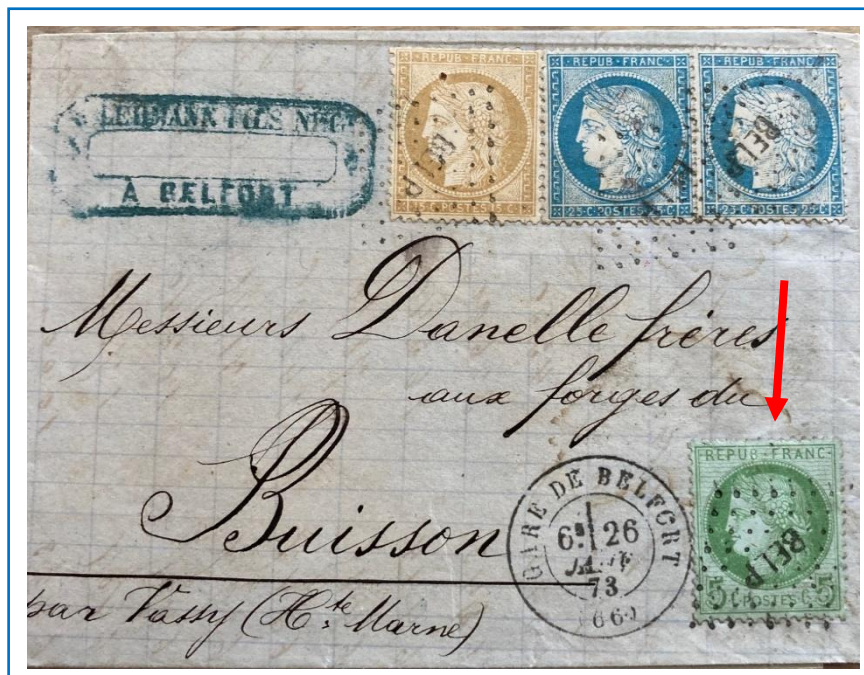 LEHMANN FILS NÉGTS
A BELFORT
REPUB·FRANC·
15·C·POSTES·15·C
REPUB·FRANC·
25·C·POSTES·25·C
REPUB·FRANC·
25·C·POSTES·25·C
BELP
BELP
Messieurs Danelle frères
aux forges du
Buisson
par Vassy (Hte Marne)
GARE DE BELFORT
6E 26
JANV
73
(66)
REPUB·FRANC·
5 C POSTES 5 C
BELP